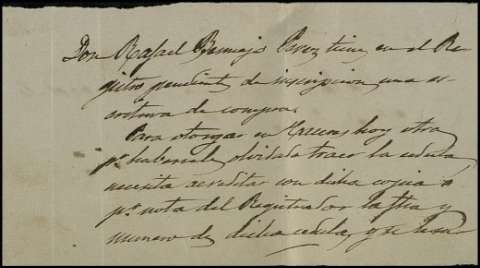 Don Rafael Bermejo Perez tiene en el Re-
gistro pendiente de inscripcion una es-
critura de compra.
Para otorgar en hoy otra
pr habersele olvidado traer la cedula,
necesita acreditar con dicha copia ó
pr nota del Registrador la fha y
numero de dicha cedula, y se